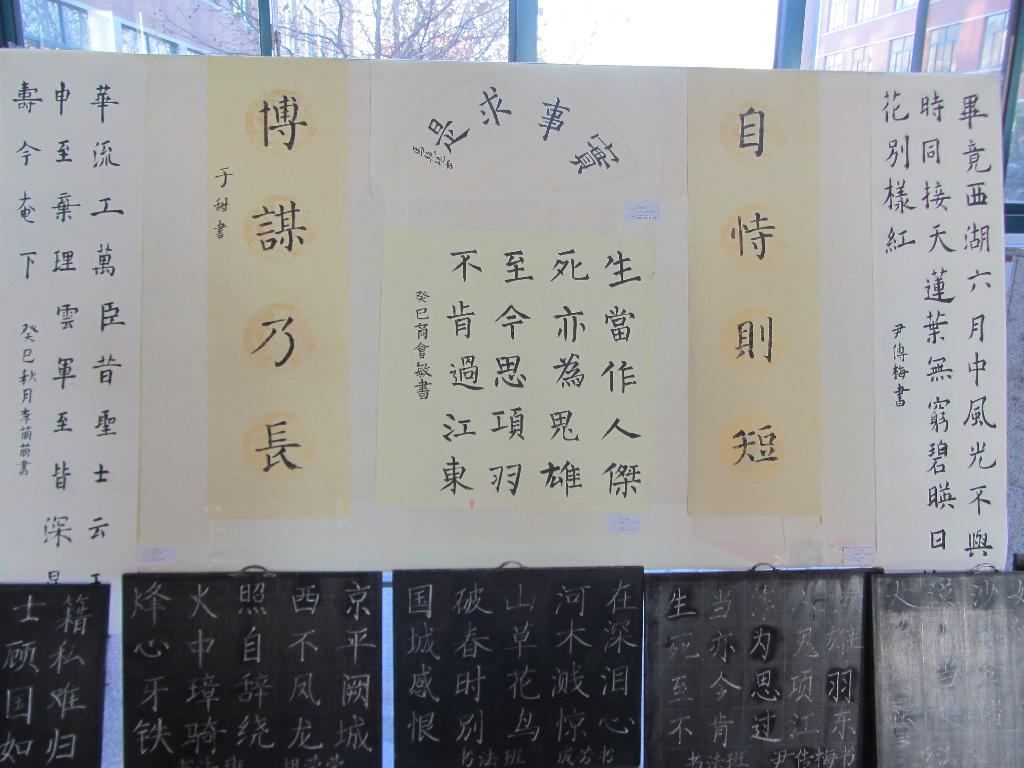 畢竟西湖六月中風光不與
時同接天蓮葉無窮碧暎日
花別樣紅
尹傳梅書
自恃則短
實事求是
生當作人傑
死亦為鬼雄
至今思項羽
不肯過江東
癸巳商會敏書
博謀乃長
于甜書
華流工萬臣昔聖士云
申至棄理雲軍至皆深
壽今奄下
癸巳秋月李萌萌書
雄羽东
人鬼项江
为思过
当亦今肯
生死至不
书法班 尹传梅书
在深泪心
河木溅惊
山草花鸟
破春时别
国城感恨
书法班 成芳书
京平阙城
西不凤龙
照自辞绕
火中璋骑
烽心牙铁
书法班
籍私难归
士顾国如